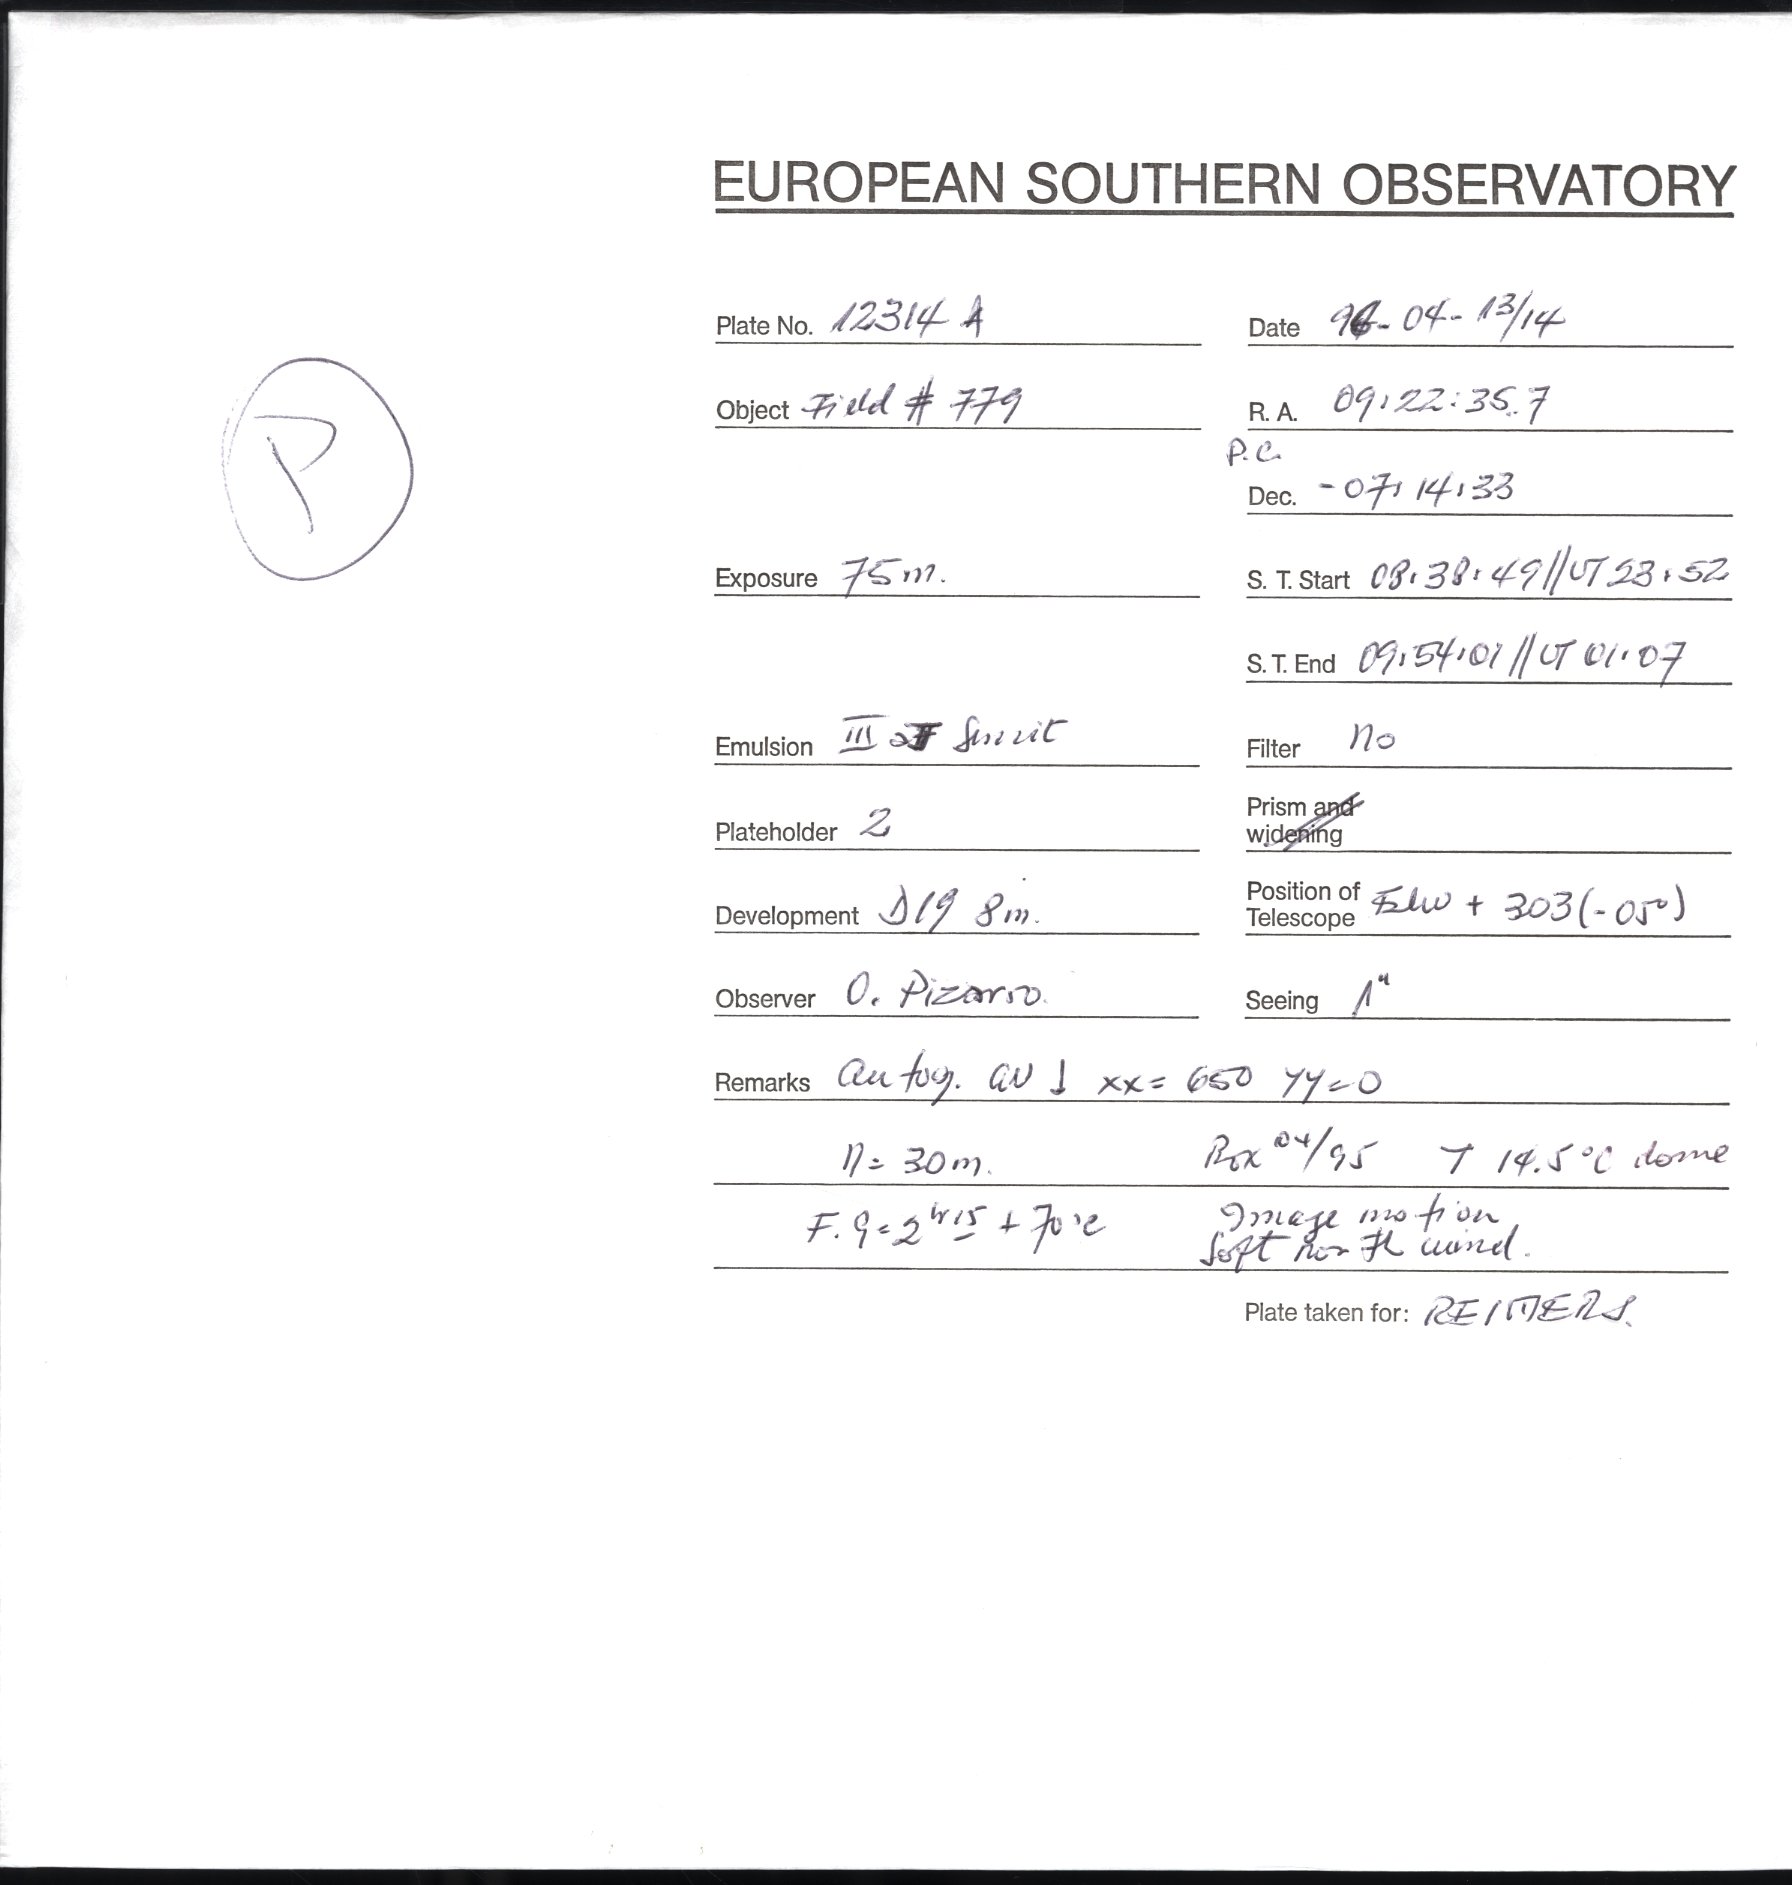 EUROPEAN SOUTHERN OBSERVATORY
Plate No. 12314 A
Date 96-04-13/14
P
Object Field # 779
R. A. 09:22:35.7
P.C.
Dec. -07:14:33
Exposure 75m.
S. T. Start 08:38:49//UT 23:52
S. T. End 09:54:01//UT 01:07
Emulsion III
Filter no
Plateholder 2
Prism and
widening
Development D19 8m.
Position of
Telescope + 303(-050)
Observer O. Pizarro.
Seeing 1"
Remarks Autog. xx= 650 yy=0
n= 30m. Box 04/95 T 14.5°C dome
F. 9=2 hr15 + 70°c
Image motion
soft north wind.
Plate taken for: REIMERS.